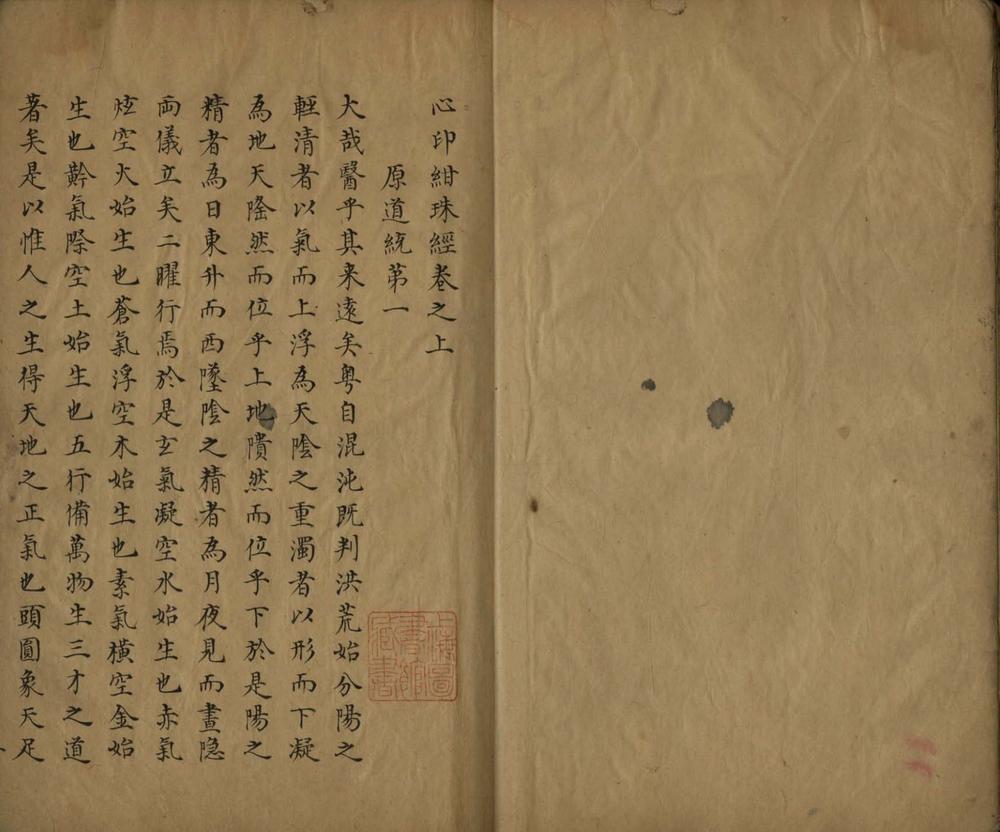 心印紺珠經卷之上
原道統第一
大哉醫乎其来遠矣粤自混沌既判洪荒始分陽之
輕清者以氣而上浮為天陰之重濁者以形而下凝
為地天隆然而位乎上地隤然而位乎下於是陽之
精者為日東升而西墜陰之精者為月夜見而晝隐
兩儀立矣二曜行焉於是玄氣凝空水始生也赤氣
炫空火始生也蒼氣浮空木始生也素氣橫空金始
生也黅氣際空土始生也五行備萬物生三才之道
著矣是以惟人之生得天地之正氣也頭圓象天足
上海圖
書館
藏書